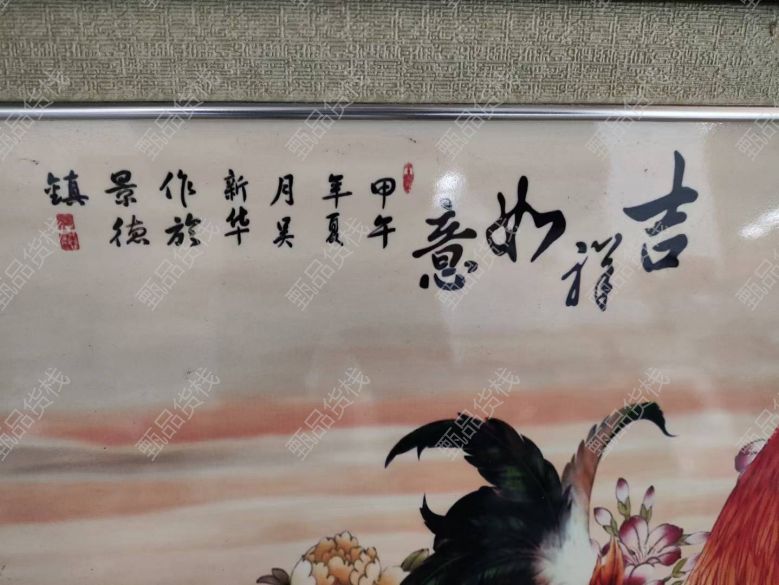 吉祥如意
甲午
年夏
月吴
新华
作於
景德
镇
甄品货栈